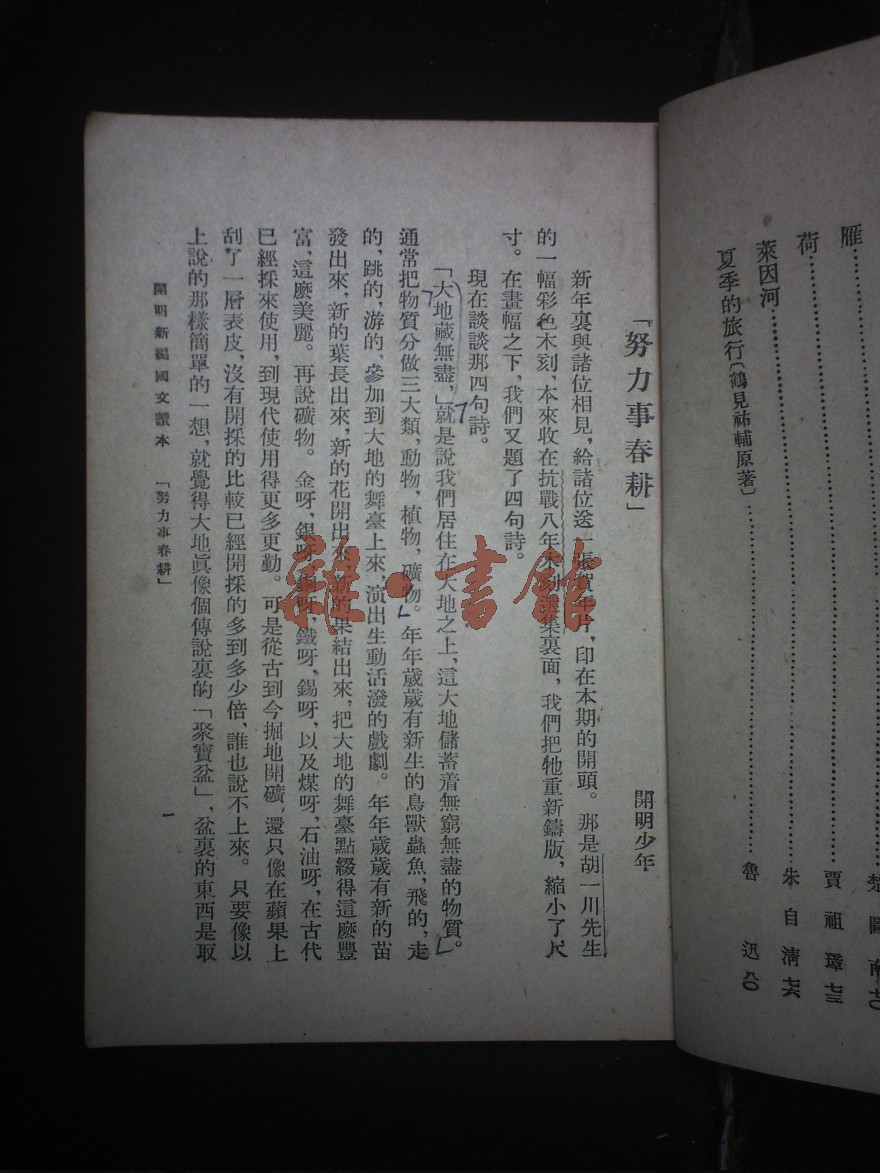 雁……………………楚圖南 七〇
荷……………………賈祖璋 七三
萊因河……………………朱自清 七六
夏季的旅行〔鶴見祐輔原著〕……………………魯迅 八〇
「努力事春耕」
開明少年
新年裏與諸位相見，給諸位送一張賀年片，印在本期的開頭。那是胡一川先生
的一幅彩色木刻，本來收在抗戰八年木刻選集裏面，我們把牠重新鑄版，縮小了尺
寸。在畫幅之下，我們又題了四句詩。
現在談談那四句詩。
「大地藏無盡，」就是說我們居住在大地之上，這大地儲蓄着無窮無盡的物質。
通常把物質分做三大類，動物，植物，礦物。年年歲歲有新生的鳥獸蟲魚，飛的，走
的，跳的，游的，參加到大地的舞臺上來，演出生動活潑的戲劇。年年歲歲有新的苗
發出來，新的葉長出來，新的花開出來，新的果結出來，把大地的舞臺點綴得這麼豐
富，這麼美麗。再說礦物。金呀，銀呀，銅呀，鐵呀，錫呀，以及煤呀，石油呀，在古代
已經採來使用，到現代使用得更多更勤。可是從古到今掘地開礦，還只像在蘋果上
刮了一層表皮，沒有開採的比較已經開採的多到多少倍，誰也說不上來。只要像以
上說的那樣簡單的一想，就覺得大地眞像個傳說裏的「聚寶盆」，盆裏的東西是取
開明新編國文讀本 「努力事春耕」 一
雜·書館